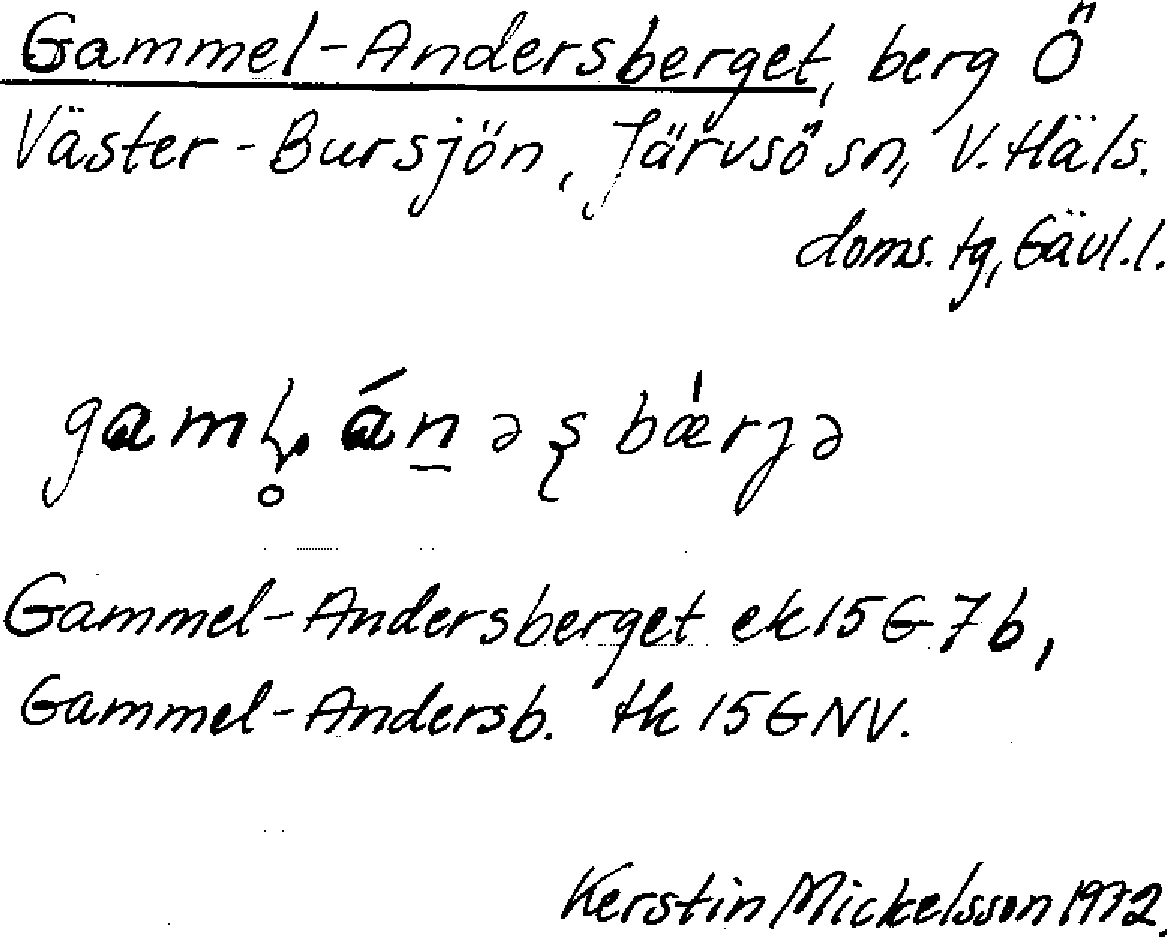 Gammel-Andersberget, berg Ö
Väster-Bursjön, Järvsö sn, V. Häls.
doms. tg, Gävl. l.
bǽrjə
Gammel-Andersberget ek 15G 7b,
Gammel-Andersb. tk 15G NV.
Kerstin Mickelsson 1972.